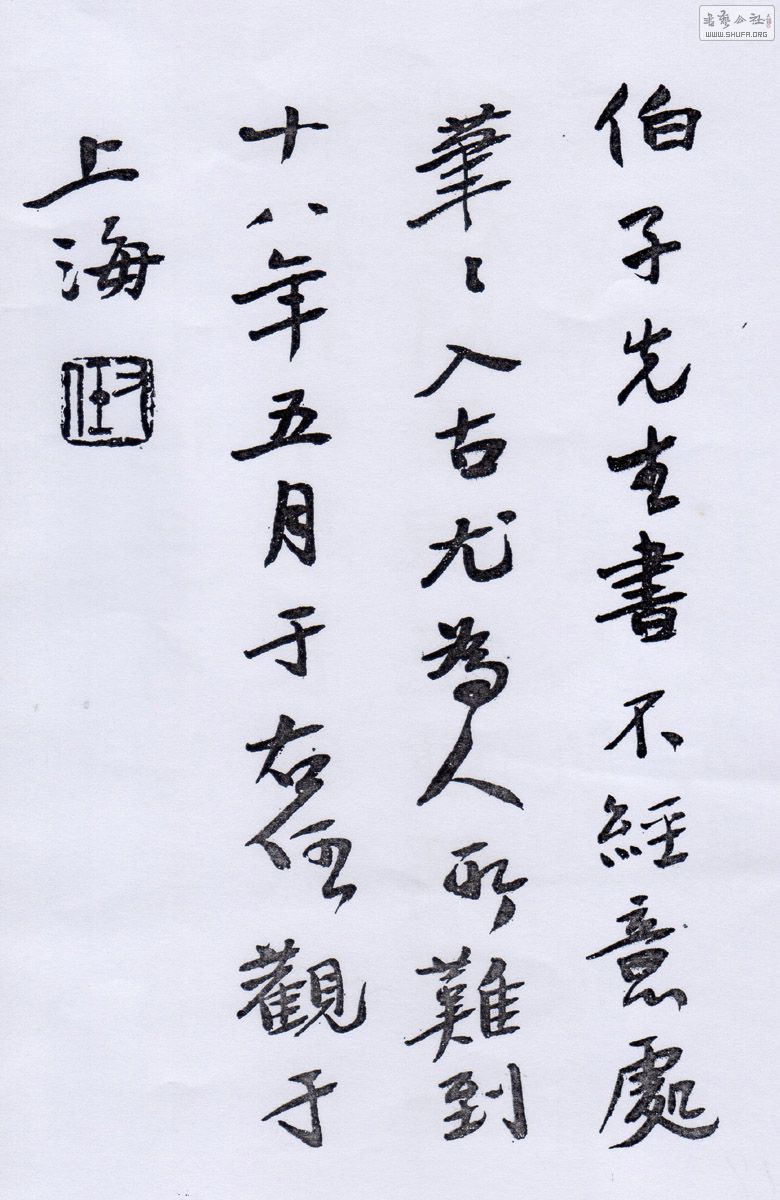 伯子先生書不經意處
筆〻入古尤為人所難到
十八年五月于右任觀于
上海
右任
書藝公社
WWW.SHUFA.ORG